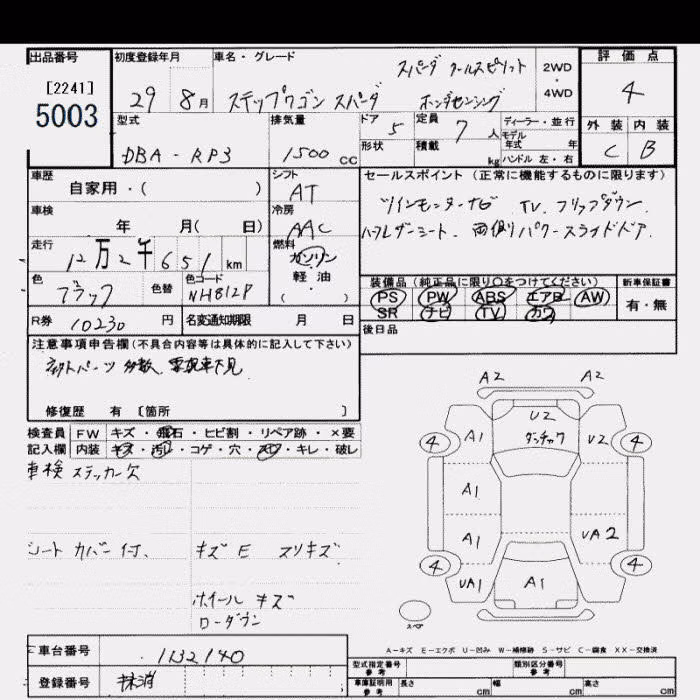 出品番号
[2241]
5003
初度登録年月
29 8月
車名・グレード
スパーダ クールスピリット
ステップワゴン スパーダ ホンダセンシング
2WD
・
4WD
評価点
4
外装 内装
C B
型式
DBA-RP3
排気量
1500 CC
ドア 5
形状
定員 7 人
積載 kg
ディーラー・並行
モデル
年式 年
ハンドル 左・右
車歴
自家用・( )
シフト
AT
車検
年 月( 日)
冷房
AAC
走行
12万2千651 km
燃料
ガソリン
軽油
( )
色
ブラック
色替
色コード
NH812P
R券 10230 円
名変通知期限 月 日
セールスポイント(正常に機能するものに限ります)
ツインモニターナビ TV. フリップダウン
ハーフレザーシート. 両側パワースライドドア.
装備品(純正品に限り○をつけてください)
PS PW ABS エアB AW
SR ナビ TV カワ
新車保証書
有・無
後日品
注意事項申告欄(不具合内容等は具体的に記入して下さい)
社外パーツ多数. 要現車下見
修復歴 有 〔箇所 〕
検査員
記入欄
FW キズ・飛石・ヒビ割・リペア跡・×要
内装 キズ・汚レ・コゲ・穴・スレ・キレ・破レ
車検ステッカー欠
シートカバー付. キズ E スリキズ
ホイールキズ
ローダウン
A2 A2
U2
ダッチャク
4 A1 U2 4
A1
A1 UA2
4 4
UA1 A1
スペア
A-キズ E-エクボ U-凹み W-補修跡 S-サビ C-腐食 XX-交換済
車台番号 1132140
登録番号 抹消
型式指定番号
参考
類別区分番号
参考
車庫証明用
参考
長さ cm 幅 cm 高さ cm